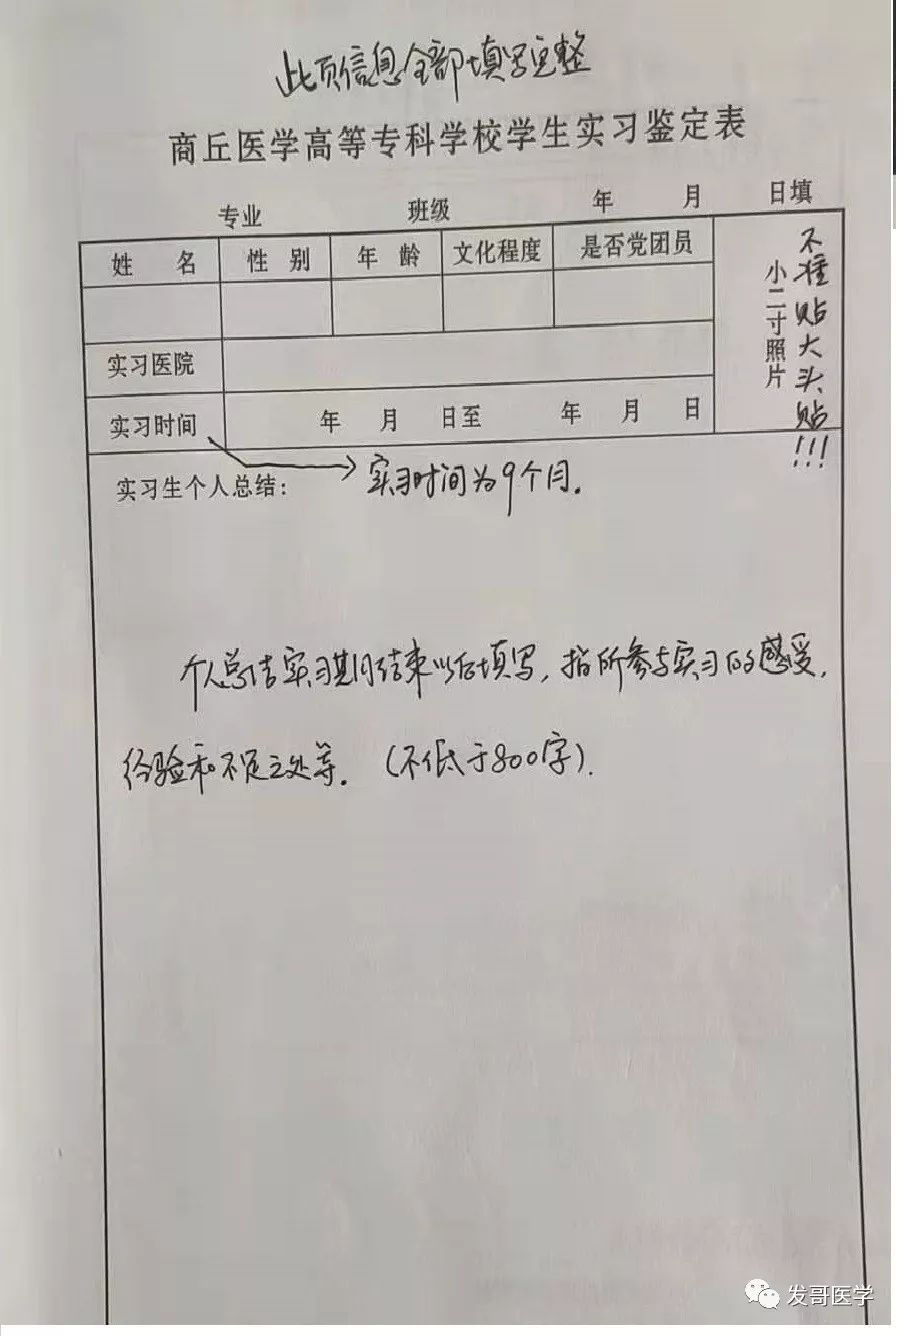 此页信息全部填写完整
商丘医学高等专科学校学生实习鉴定表
专业 班级 年 月 日填
姓 名 性 别 年 龄 文化程度 是否党团员
小二寸照片
不准贴大头贴!!!
实习医院
实习时间 年 月 日至 年 月 日
实习生个人总结:
实习时间为9个月.
个人总结实习期间结束以后填写,指所参与实习的感受,
经验和不足之处等.(不低于800字).
发哥医学